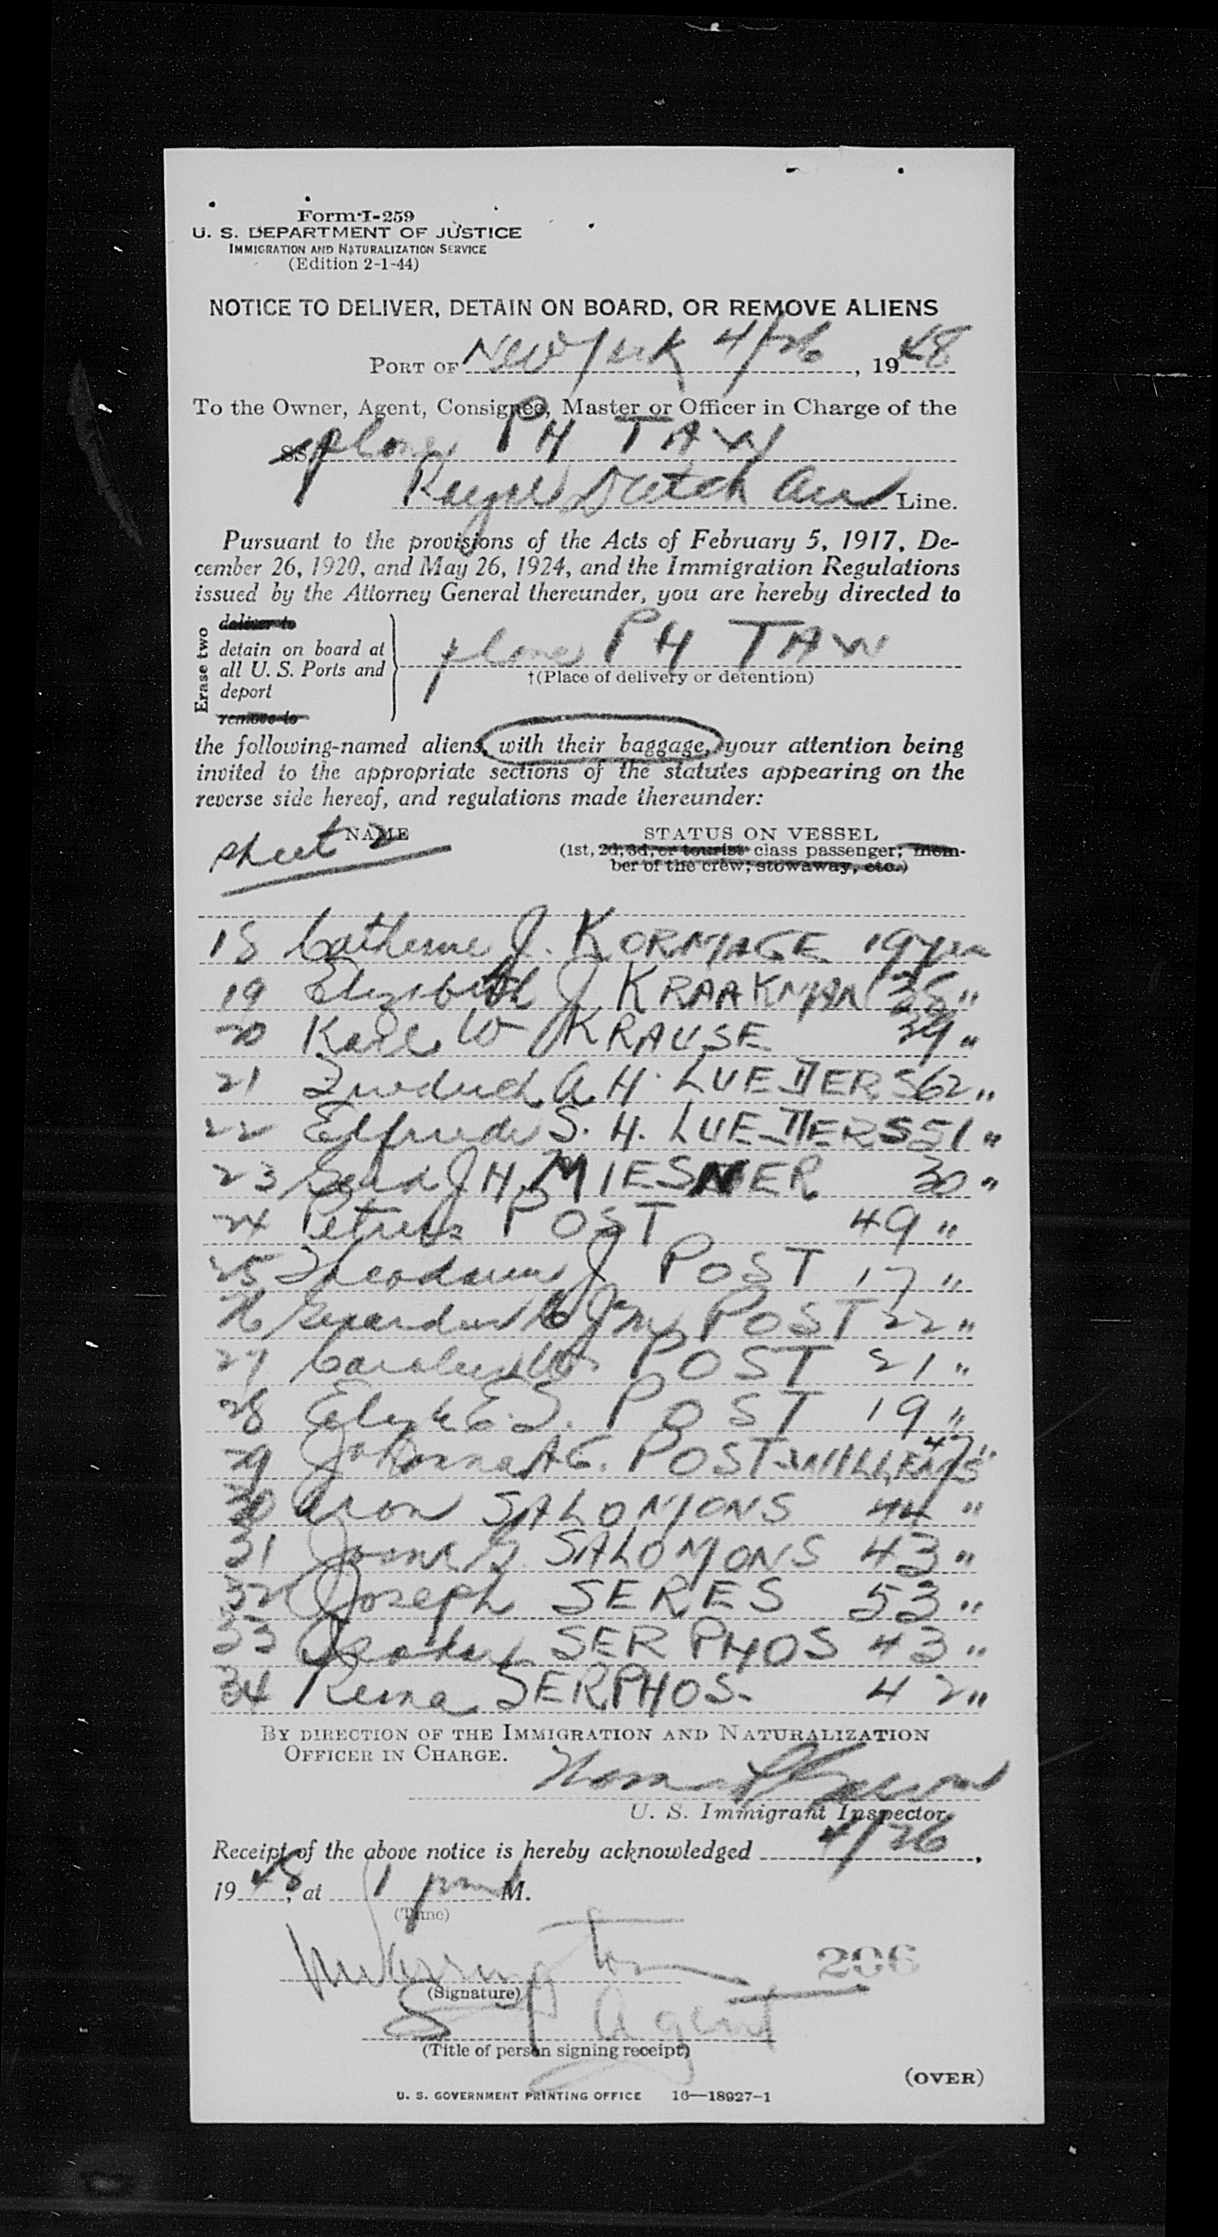 Form I-259
U. S. DEPARTMENT OF JUSTICE
IMMIGRATION AND NATURALIZATION SERVICE
(Edition 2-1-44)
NOTICE TO DELIVER, DETAIN ON BOARD, OR REMOVE ALIENS
PORT OF New York 4/26, 1948
To the Owner, Agent, Consignee, Master or Officer in Charge of the
SS plane PH TAW
Royal Dutch Air Line.
Pursuant to the provisions of the Acts of February 5, 1917, De-
cember 26, 1920, and May 26, 1924, and the Immigration Regulations
issued by the Attorney General thereunder, you are hereby directed to
Erase two
deliver to
detain on board at
all U. S. Ports and
deport
remove to
plane PH TAW
†(Place of delivery or detention)
the following-named aliens, with their baggage, your attention being
invited to the appropriate sections of the statutes appearing on the
reverse side hereof, and regulations made thereunder:
NAME STATUS ON VESSEL
sheet 2 (1st, 2d, 3d, or tourist class passenger; mem-
ber of the crew; stowaway, etc.)
18 Catherine J. KORMAGE 19 yrs
19 Elizabeth J KRAAKMAN 38 "
20 Karl W KRAUSE 39 "
21 A H. LUEDDERS 62 "
22 Elfriede S. H. LUEDDERS 51 "
23 Gerd J H. MIESNER 30 "
24 Petrus POST 49 "
25 J POST 17 "
26 Gerardus POST 22 "
27 POST 21 "
28 E. S. POST 19 "
29 Johanna A G. POST-WILLEMS 47 "
30 Aron SALOMONS 44 "
31 G. SALOMONS 43 "
32 Joseph SERES 53 "
33 SERPHOS 43 "
34 Reina SERPHOS. 42 "
BY DIRECTION OF THE IMMIGRATION AND NATURALIZATION
OFFICER IN CHARGE.
U. S. Immigrant Inspector.
Receipt of the above notice is hereby acknowledged 4/26,
1948, at 1 pm M.
(Time)
206
(Signature)
Agent
(Title of person signing receipt)
(OVER)
U. S. GOVERNMENT PRINTING OFFICE 16—18927-1